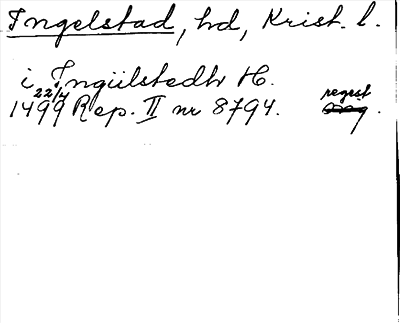 Ingelstad, hd, Krist. l.
i Ingiilstedh H.
22/4 regest
1499 Rep. II nr 8794.